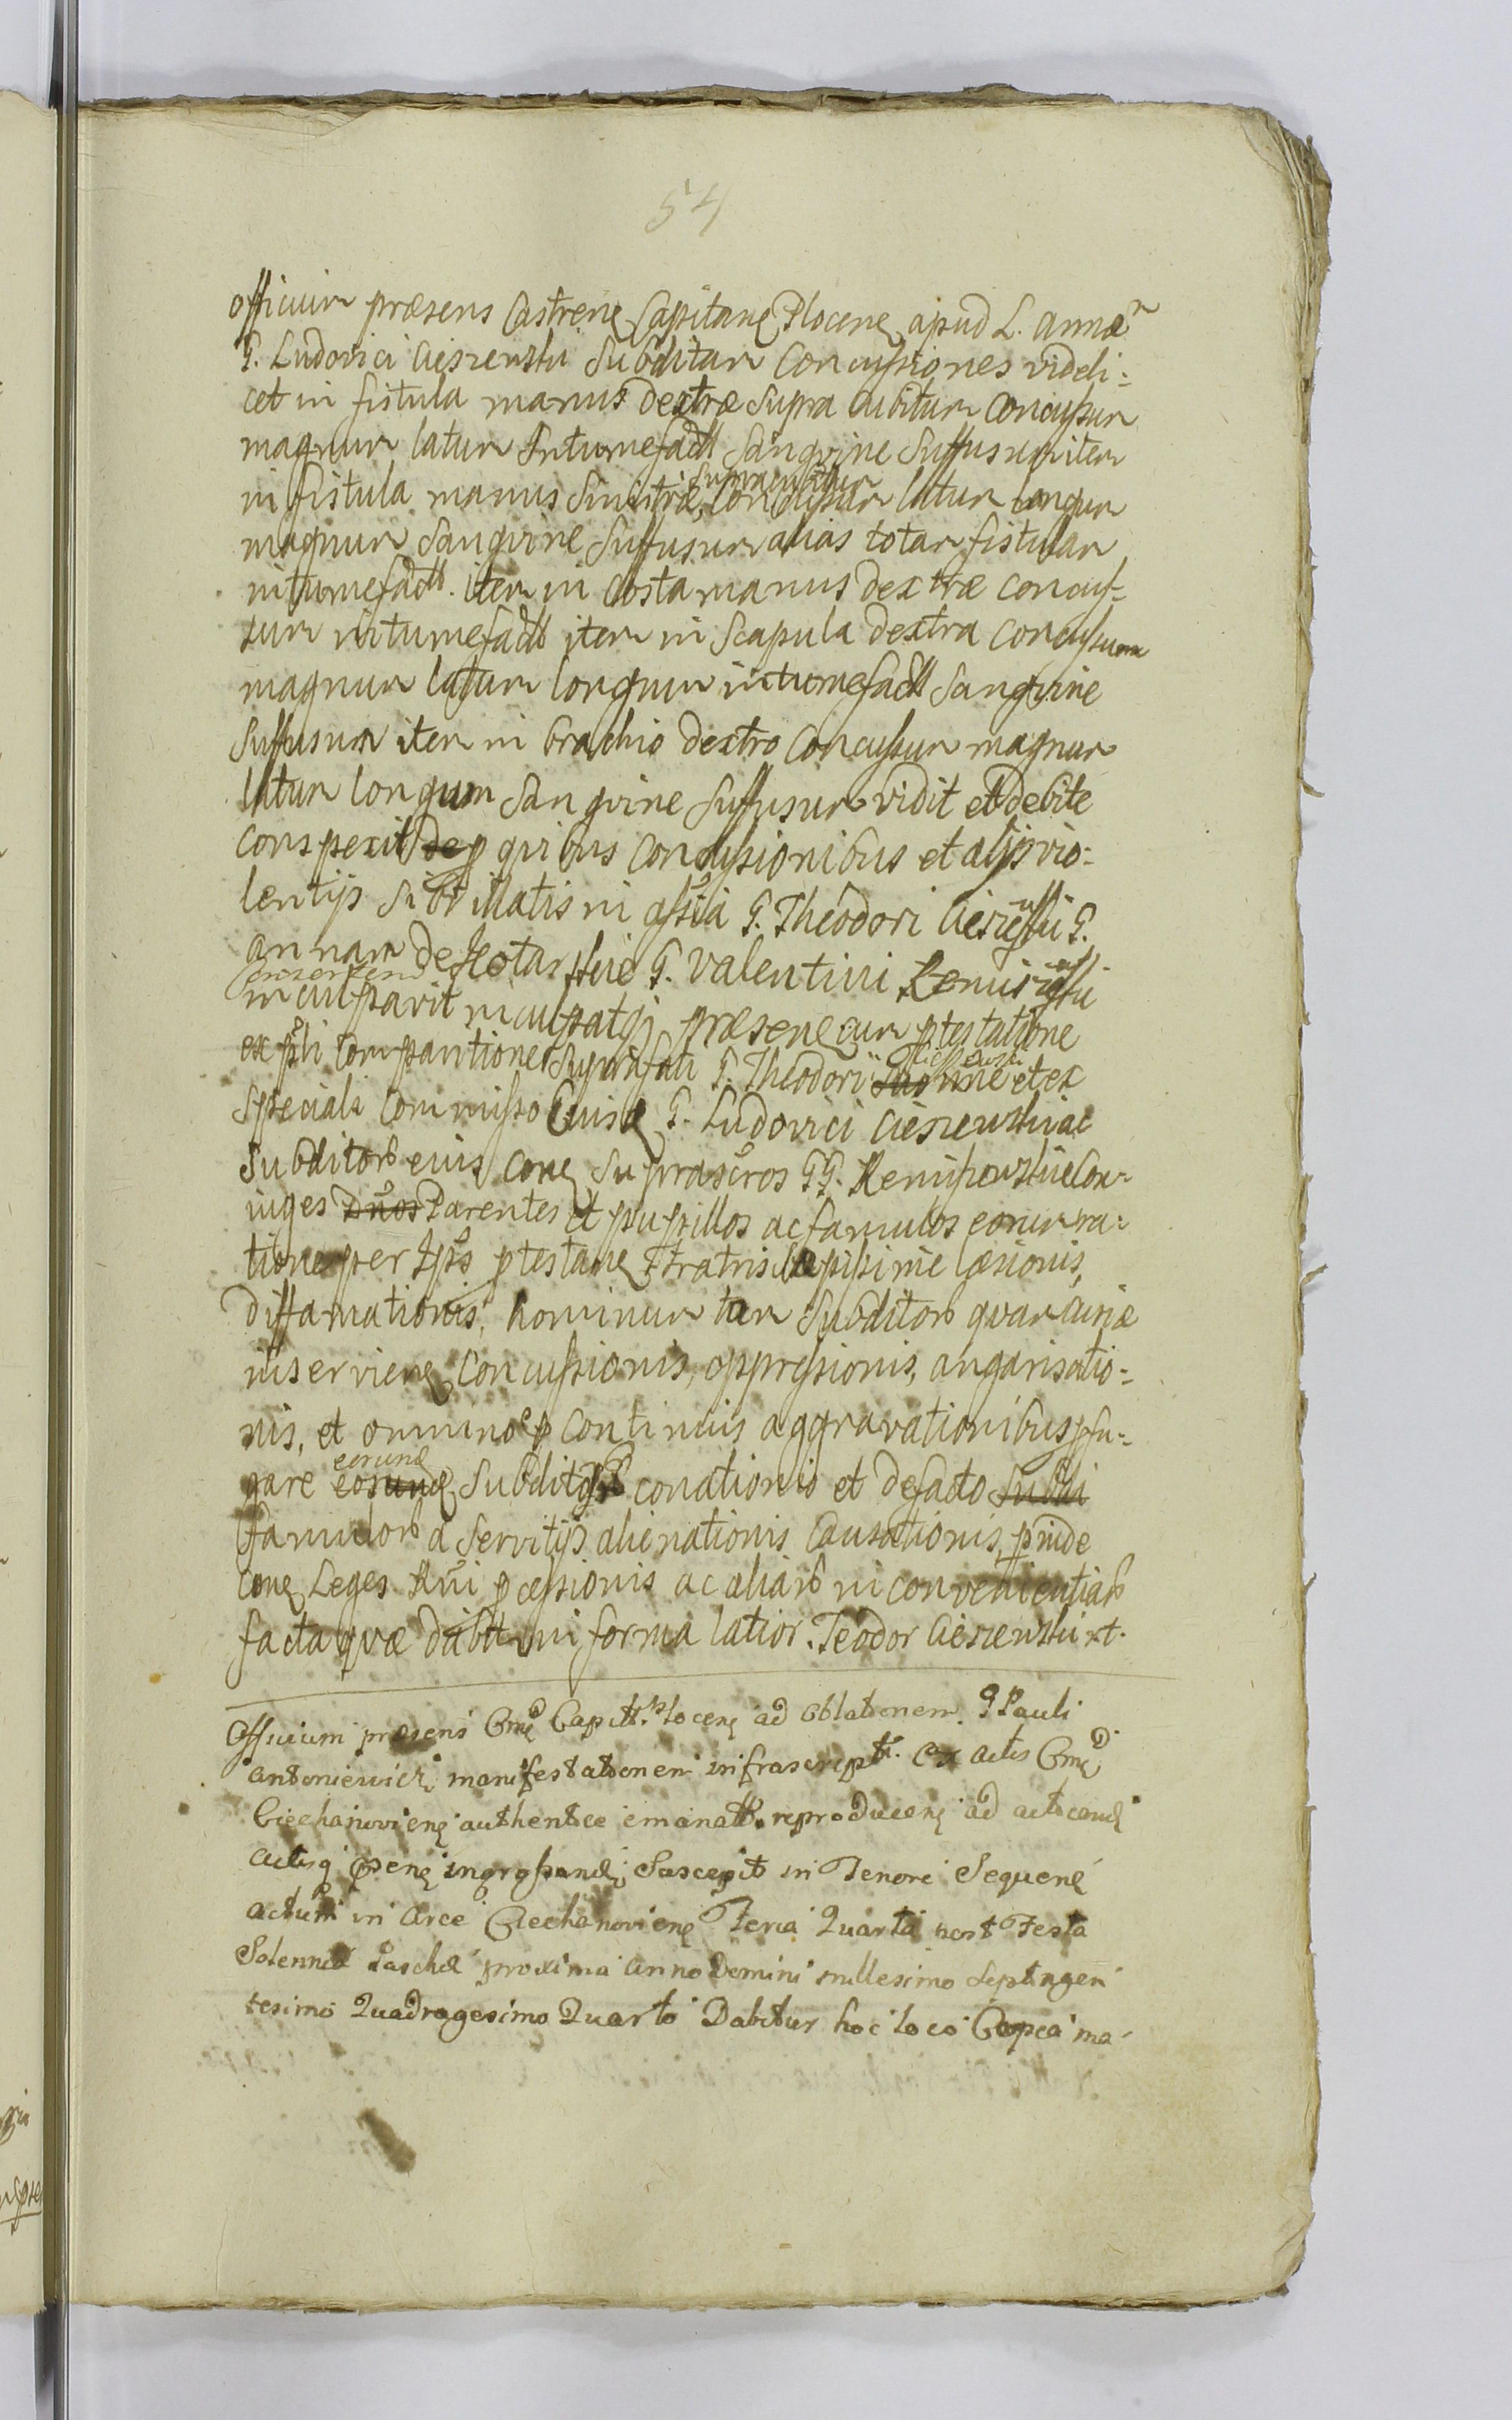 54
officium præsens Castren Capitan Plocen apud L. Annæ
G. Ludovici Ciesienski Subditam Concussiones videli:
cet in fistula manus dextræ supra cubitum Concussum
magnum latum Intumefactt Sangvine Suffusum item
in fistula manus Sinistræ, supra cubitum Concussum latum longum
magnum Sangvine Suffusum alias totam fistulam
intumefactt. item in Costa manus dextræ concus-
sum intumefactt item in Scapula dextra Concussum
magnum latum longum intumefactt Sangvine
Suffusum item in brachio dextro Concussum magnum
latum longum Sangvine Suffusum vidit et debite
conspexit de p qvibus Concussionibus et alijs vio:
lentijs sibi illatis in assia G. Theodori Ciesienski G.
annam de G. Valentini
inculparit inculpatqj præsen cum ptestatione
ex pli Comparitione Suprafati G. Theodori Ciesienski et ex
Speciali Commisso Eius G. Ludovici Ciesienski ac
Subditor eius Con Suprascros GG. Con
iuges Duos Parentes et pupillos ac famulos eorum ra:
tione per Ipos ptestan Fratris læsionis,
diffamationis, hominum tam Subditor qvam curiæ
inservien Concussionis, oppressionis, angarisatio:
nis, et omnino p continuis aggravationibus pfu:
gare eosund eorund Subditor conationis et defacto Subdi
famulor a Servitijs alienationis Causationis, pinde
Con Leges Rni pcessionis ac aliar inconvenientiar
facta qvæ dabtt in forma latior. Teodor Ciesienski mt.
Officium præsens Cmę Capitt. Plocen ad Oblationem G Pauli
Antoniewicz manifestationem infrascriptt. Ex Actis Cmę
Ciechanovien authentce emanatt. reproducen ad acticand
Actisq psen ingrossand Suscepit in Tenore Sequen
Actum in Arce Ciechanovien Feria Quarta post Festa
Solennia Paschæ proxima Anno Domini millesimo Septingen
tesimo Quadragesimo Quarto Dabitur hoc loco Copea ma-